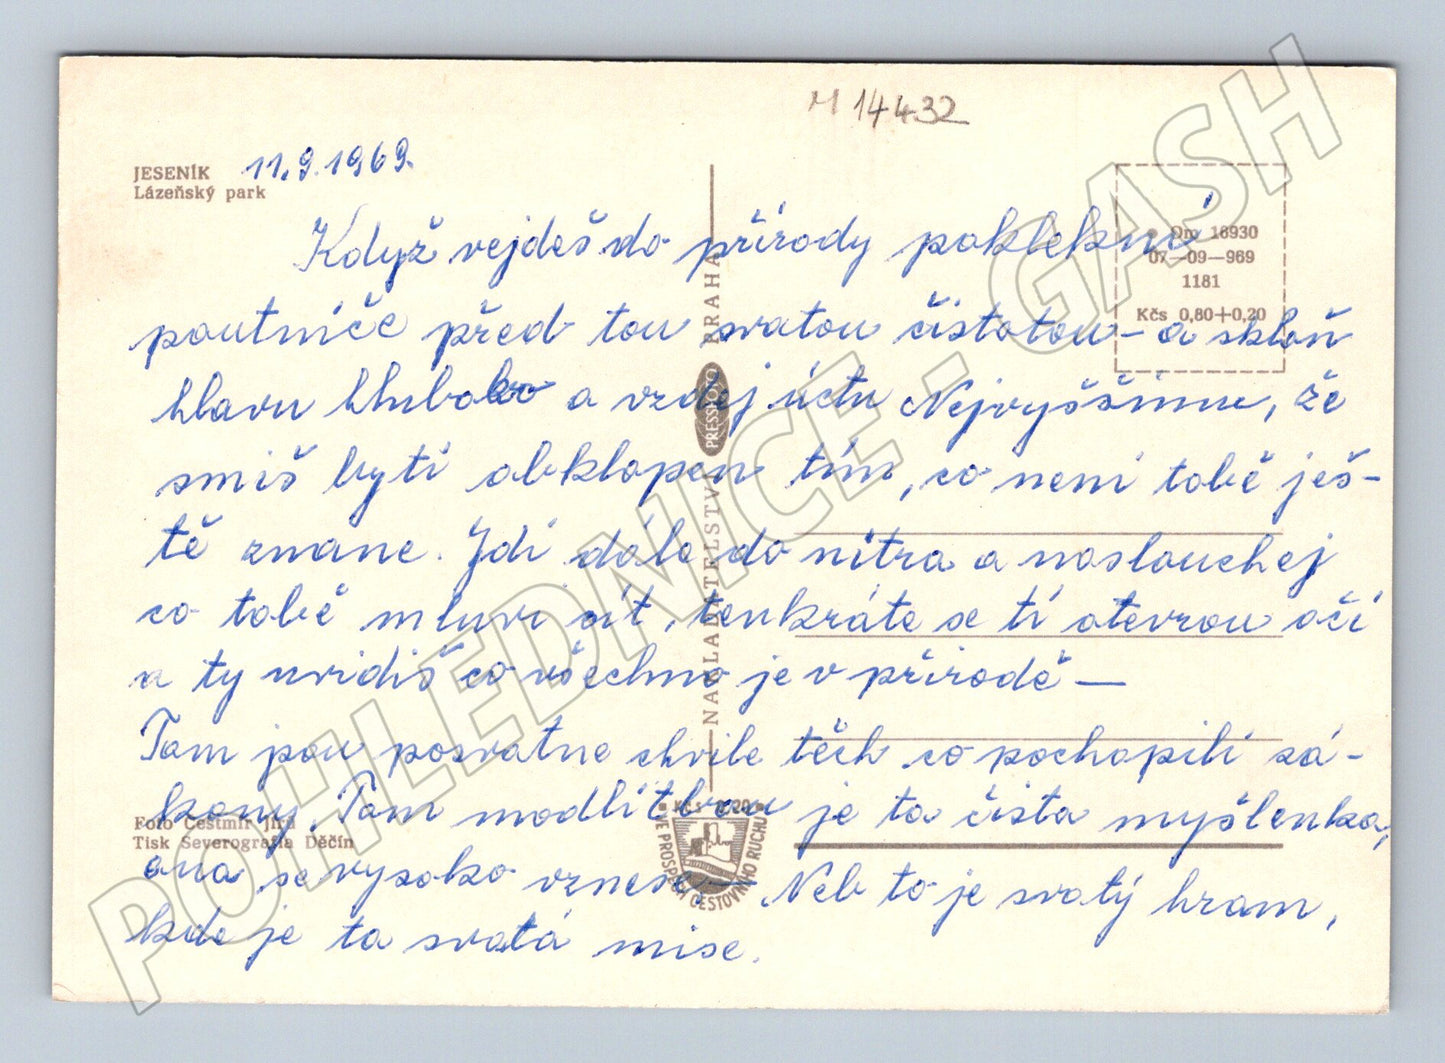 M 14432
JESENÍK 11.9.1969.
Lázeňský park
Dm 16930
07—09—969
1181
Kčs 0,80+0,20
Když vejdeš do přírody poklekni
poutníče před tou svatou čistotou – a skloň
hlavu hluboko a vzdej úctu Nejvyššímu, že
smiš byti obklopen tím, co není tobě ješ-
tě znane. Jdi dále do nitra a naslouchej
co tobě mluví cít, tenkráte se ti otevrou oči
a ty uvidiš co všechno je v přírodě —
Tam jsou posvatne chvile těch co pochopili zá-
kony. Tam modlitbou je ta čista myšlenka,
ona se vysoko vznese, — Neb to je svatý hram,
kde je ta svatá mise.
Foto Čestmír Jírů
Tisk Severografia Děčín
NAKLADATELSTVÍ PRESSFOTO PRAHA
Kčs 0,20
VE PROSPĚCH CESTOVNÍHO RUCHU
POHLEDNICE - GASH